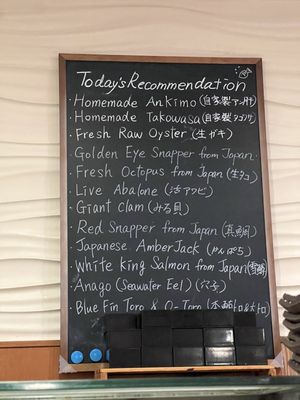 Today's Recommendation
· Homemade Ankimo (自家製アン肝)
· Homemade Takowasa (自家製タコワサ)
· Fresh Raw Oyster (生ガキ)
· Golden Eye Snapper from Japan
· Fresh Octopus from Japan (生タコ)
· Live Abalone (活アワビ)
· Giant Clam (みる貝)
· Red Snapper from Japan (真鯛)
· Japanese AmberJack (かんぱち)
· White King Salmon from Japan
· Anago (Seawater Eel) (穴子)
· Blue Fin Toro & O-Toro